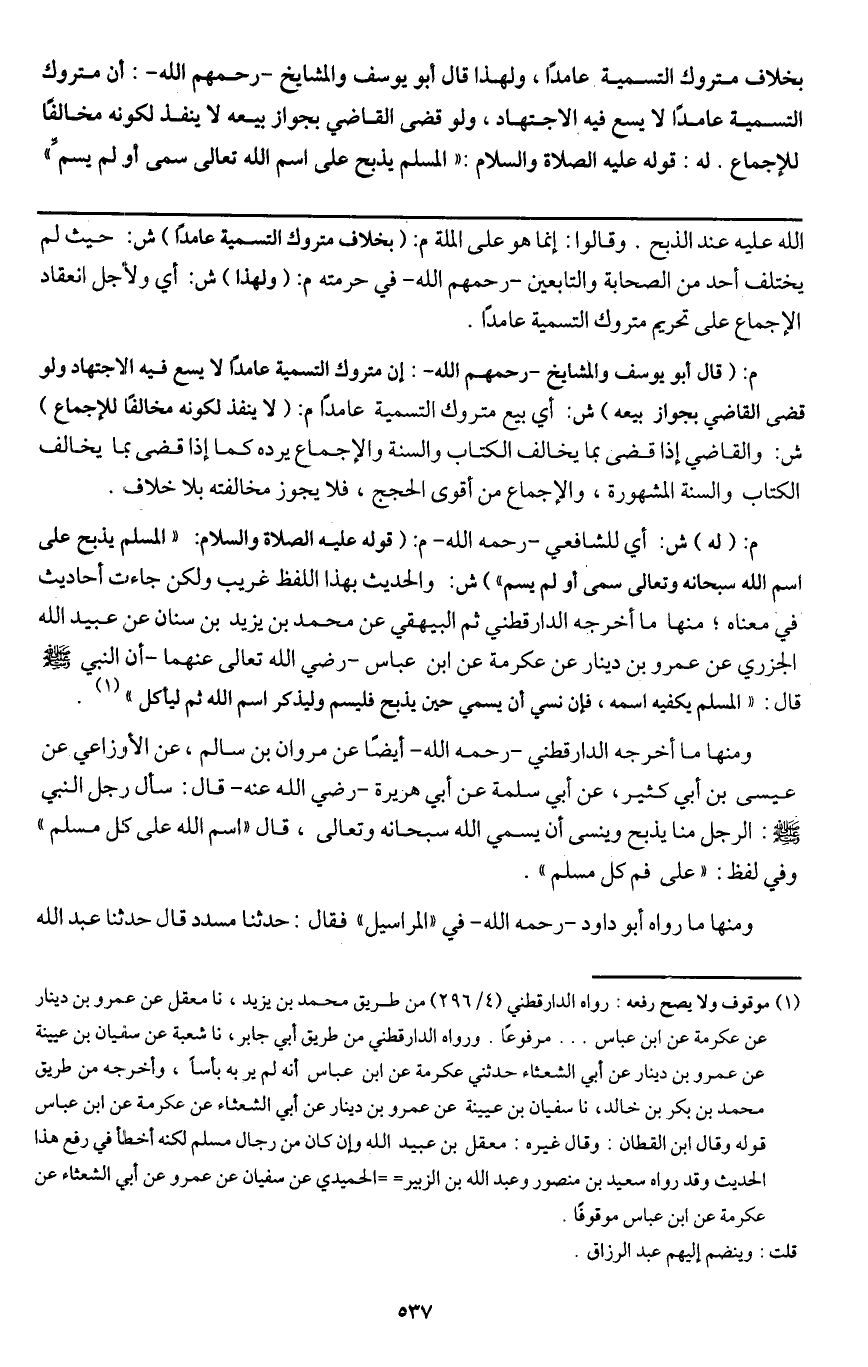 بخلاف متروك التسمية عامدًا ، ولهذا قال أبو يوسف والمشايخ -رحمهم الله- : أن متروك
التسمية عامدًا لا يسع فيه الاجتهاد ، ولو قضى القاضي بجواز بيعه لا ينفذ لكونه مخالفًا
للإجماع . له : قوله عليه الصلاة والسلام :« المسلم يذبح على اسم الله تعالى سمى أو لم يسم »
الله عليه عند الذبح . وقالوا : إنما هو على الملة م: ( بخلاف متروك التسمية عامدًا ) ش: حيث لم
يختلف أحد من الصحابة والتابعين -رحمهم الله- في حرمته م: ( ولهذا ) ش: أي ولأجل انعقاد
الإجماع على تحريم متروك التسمية عامدًا .
م: ( قال أبو يوسف والمشايخ -رحمهم الله- : إن متروك التسمية عامدًا لا يسع فيه الاجتهاد ولو
قضى القاضي بجواز بيعه ) ش: أي بيع متروك التسمية عامدًا م: ( لا ينفذ لكونه مخالفًا للإجماع )
ش: والقاضي إذا قضى بما يخالف الكتاب والسنة والإجماع يرده كما إذا قضى بما يخالف
الكتاب والسنة المشهورة ، والإجماع من أقوى الحجج ، فلا يجوز مخالفته بلا خلاف .
م: ( له ) ش: أي للشافعي -رحمه الله- م: ( قوله عليه الصلاة والسلام: « المسلم يذبح على
اسم الله سبحانه وتعالى سمى أو لم يسم» ) ش: والحديث بهذا اللفظ غريب ولكن جاءت أحاديث
في معناه ؛ منها ما أخرجه الدارقطني ثم البيهقي عن محمد بن يزيد بن سنان عن عبيد الله
الجزري عن عمرو بن دينار عن عكرمة عن ابن عباس -رضي الله تعالى عنهما -أن النبي ﷺ
قال : « المسلم يكفيه اسمه ، فإن نسي أن يسمي حين يذبح فليسم وليذكر اسم الله ثم ليأكل » (١) .
ومنها ما أخرجه الدارقطني -رحمه الله- أيضًا عن مروان بن سالم ، عن الأوزاعي عن
عيسى بن أبي كثير ، عن أبي سلمة عن أبي هريرة -رضي الله عنه- قال : سأل رجل النبي
ﷺ : الرجل منا يذبح وينسى أن يسمي الله سبحانه وتعالى ، قال «اسم الله على كل مسلم »
وفي لفظ : « على فم كل مسلم » .
ومنها ما رواه أبو داود -رحمه الله- في «المراسيل» فقال : حدثنا مسدد قال حدثنا عبد الله
(١) موقوف ولا يصح رفعه : رواه الدارقطني (٤/ ٢٩٦) من طريق محمد بن يزيد ، نا معقل عن عمرو بن دينار
عن عكرمة عن ابن عباس . . . مرفوعًا . ورواه الدارقطني من طريق أبي جابر ، نا شعبة عن سفيان بن عيينة
عن عمرو بن دينار عن أبي الشعثاء حدثني عكرمة عن ابن عباس أنه لم ير به بأساً ، وأخرجه من طريق
محمد بن بكر بن خالد، نا سفيان بن عيينة عن عمرو بن دينار عن أبي الشعثاء عن عكرمة عن ابن عباس
قوله وقال ابن القطان : وقال غيره : معقل بن عبيد الله وإن كان من رجال مسلم لكنه أخطأ في رفع هذا
الحديث وقد رواه سعيد بن منصور وعبد الله بن الزبير= =الحميدي عن سفيان عن عمرو عن أبي الشعثاء عن
عكرمة عن ابن عباس موقوفًا .
قلت : وينضم إليهم عبد الرزاق .
٥٣٧